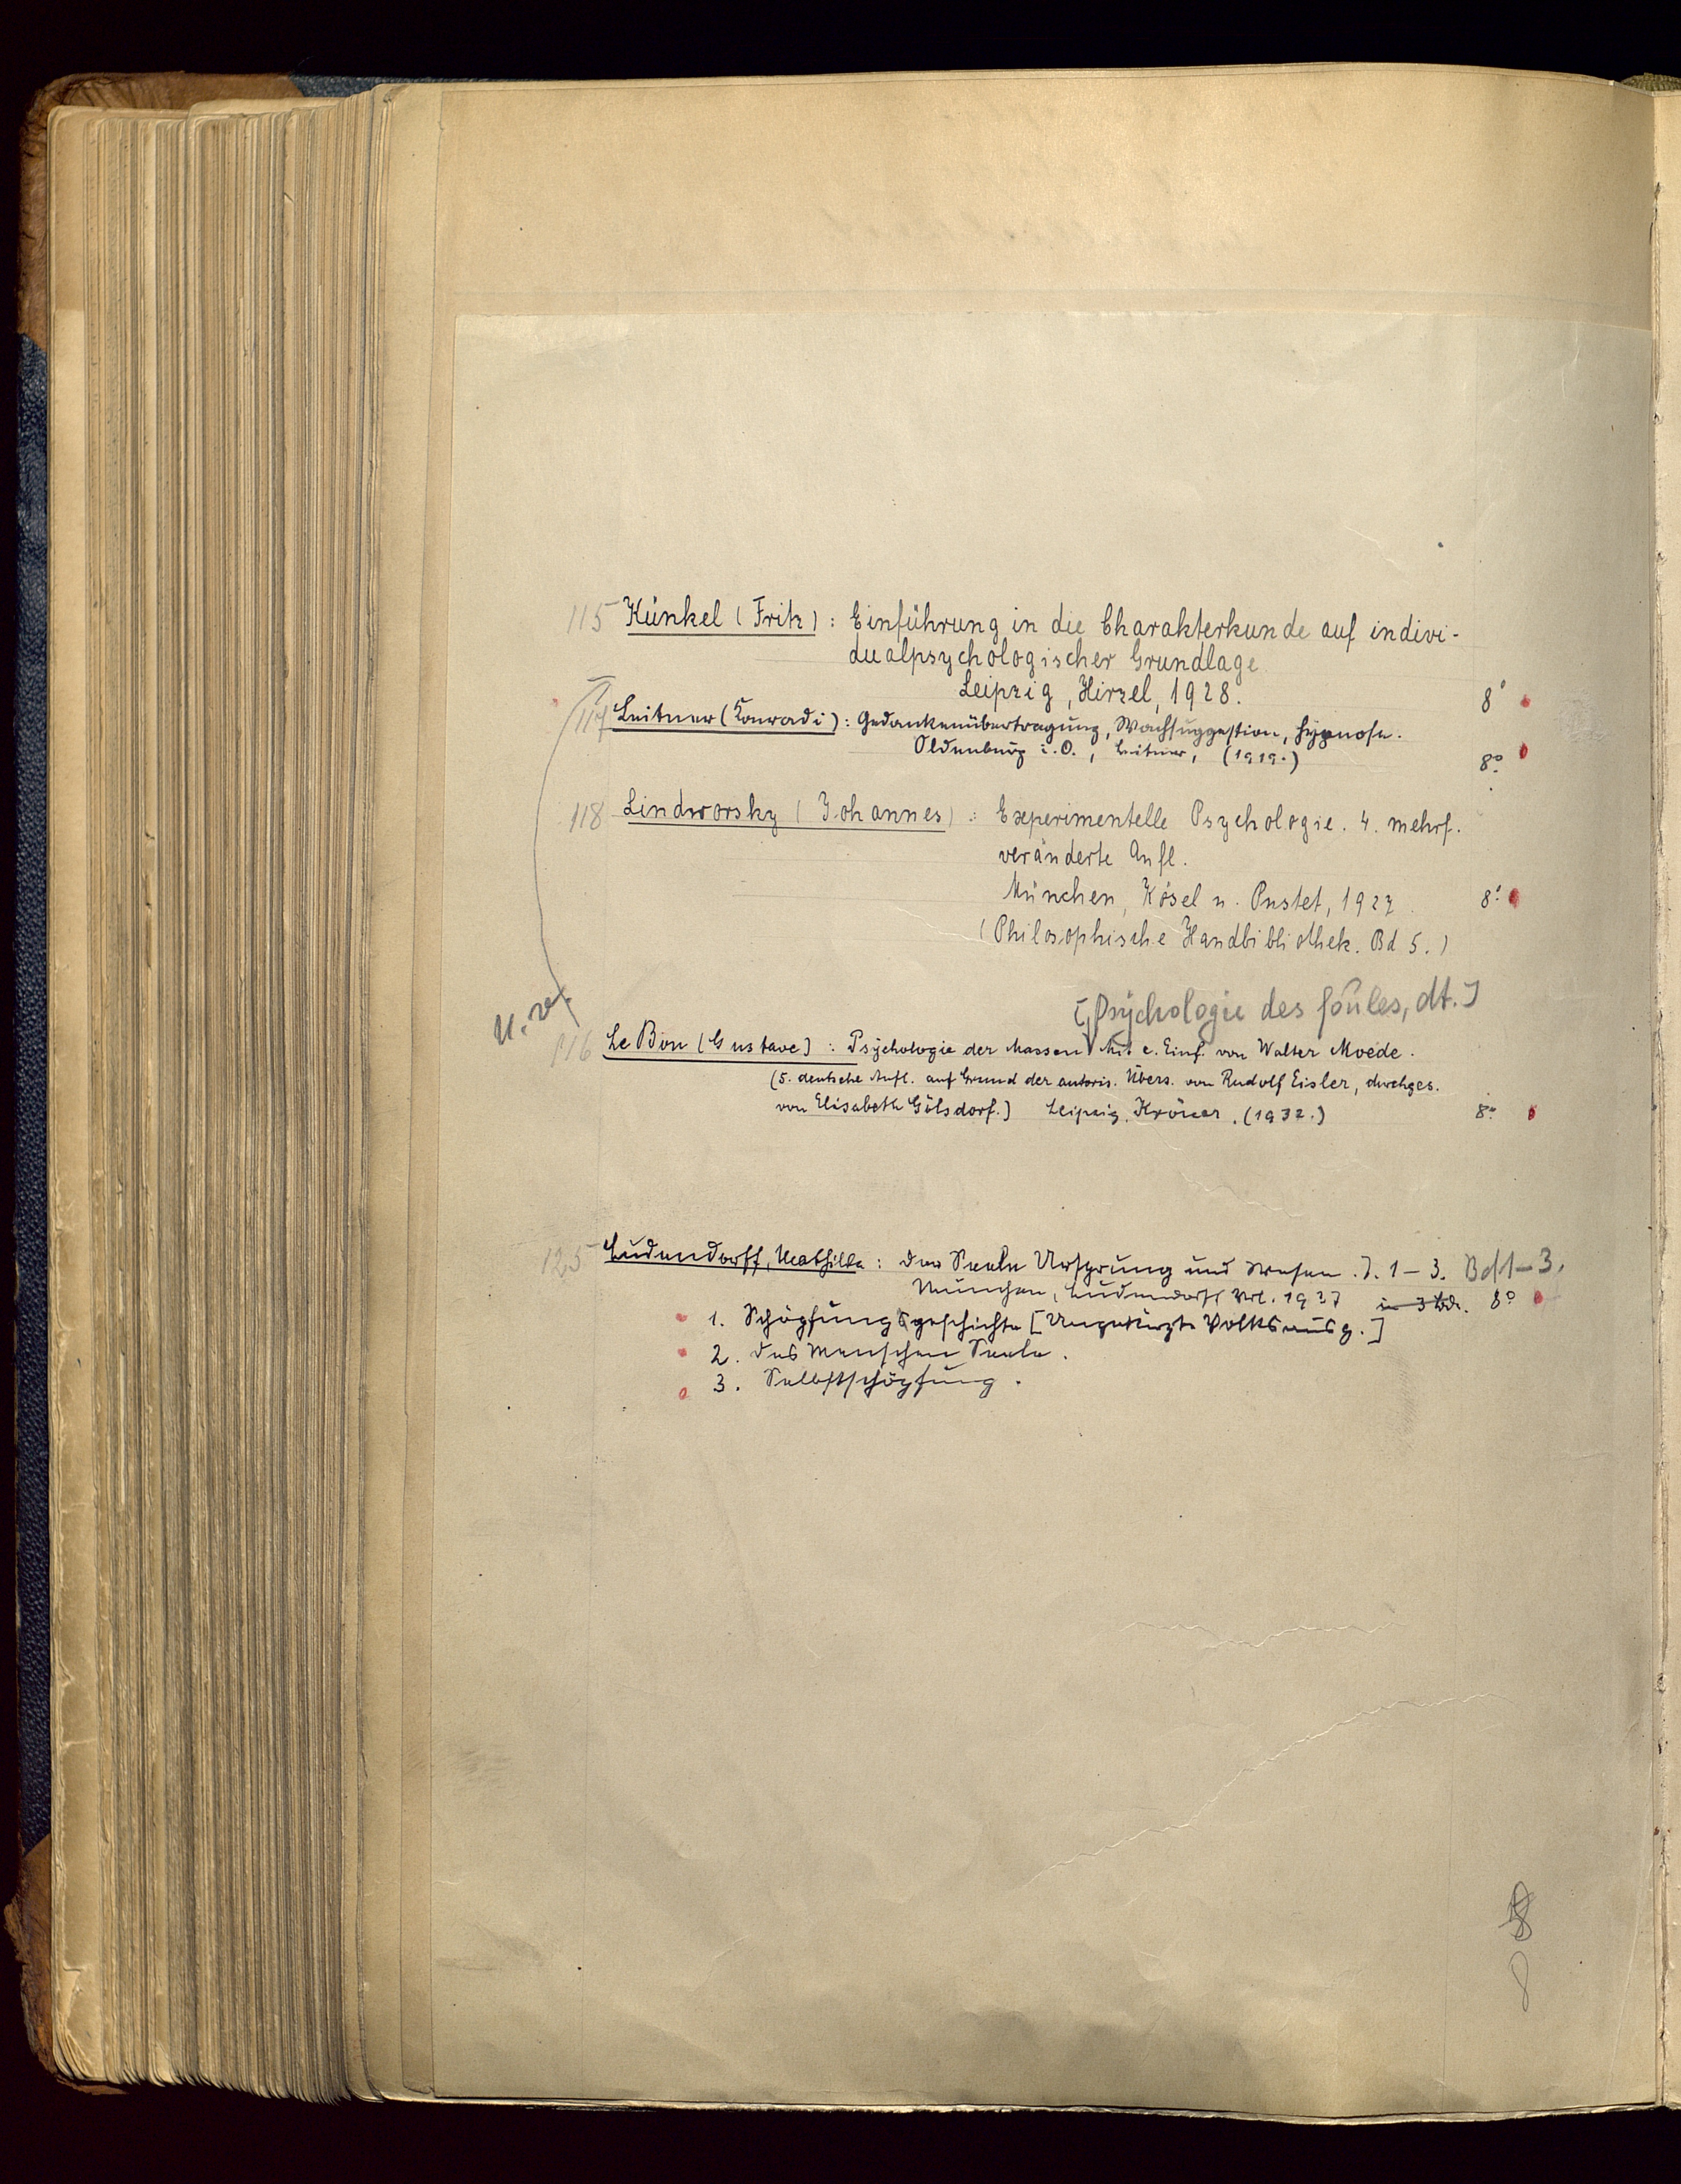 115 Künkel (Fritz) : Einführung in die Charakterkunde auf indivi-
dualpsychologischer Grundlage
Leipzig, Hirzel, 1928. 8°
117 Leitner (Konradi) : Gedankenübertragung, Wachsuggestion, Hypnose.
Oldenburg i. O., Leitner, (1919.) 8°.
118 Lindworsky (Johannes) : Experimentelle Psychologie. 4. mehrf.
veränderte Aufl.
München, Kösel u. Pustet, 1927. 8°
(Philosophische Handbibliothek. Bd 5.)
[Psychologie des foules, dt.]
116 Le Bon (Gustave) : Psychologie der Massen Mit e. Einf. von Walter Moede.
(5. deutsche Aufl. auf Grund der autoris. Übers. von Rudolf Eisler, durchges.
von Elisabeth Gölsdorf.) Leipzig. Kröner. (1932.) 8°
125 Ludendorff, Mathilde : Der Seele Ursprung und Wesen. T. 1-3. Bd 1-3.
München, Ludendorff Vrl. 1937 in 3 Bdn. 8°
1. Schöpfungsgeschichte [Ungekürzte Volksausg.]
2. Des Menschen Seele.
3. Selbstschöpfung.
8